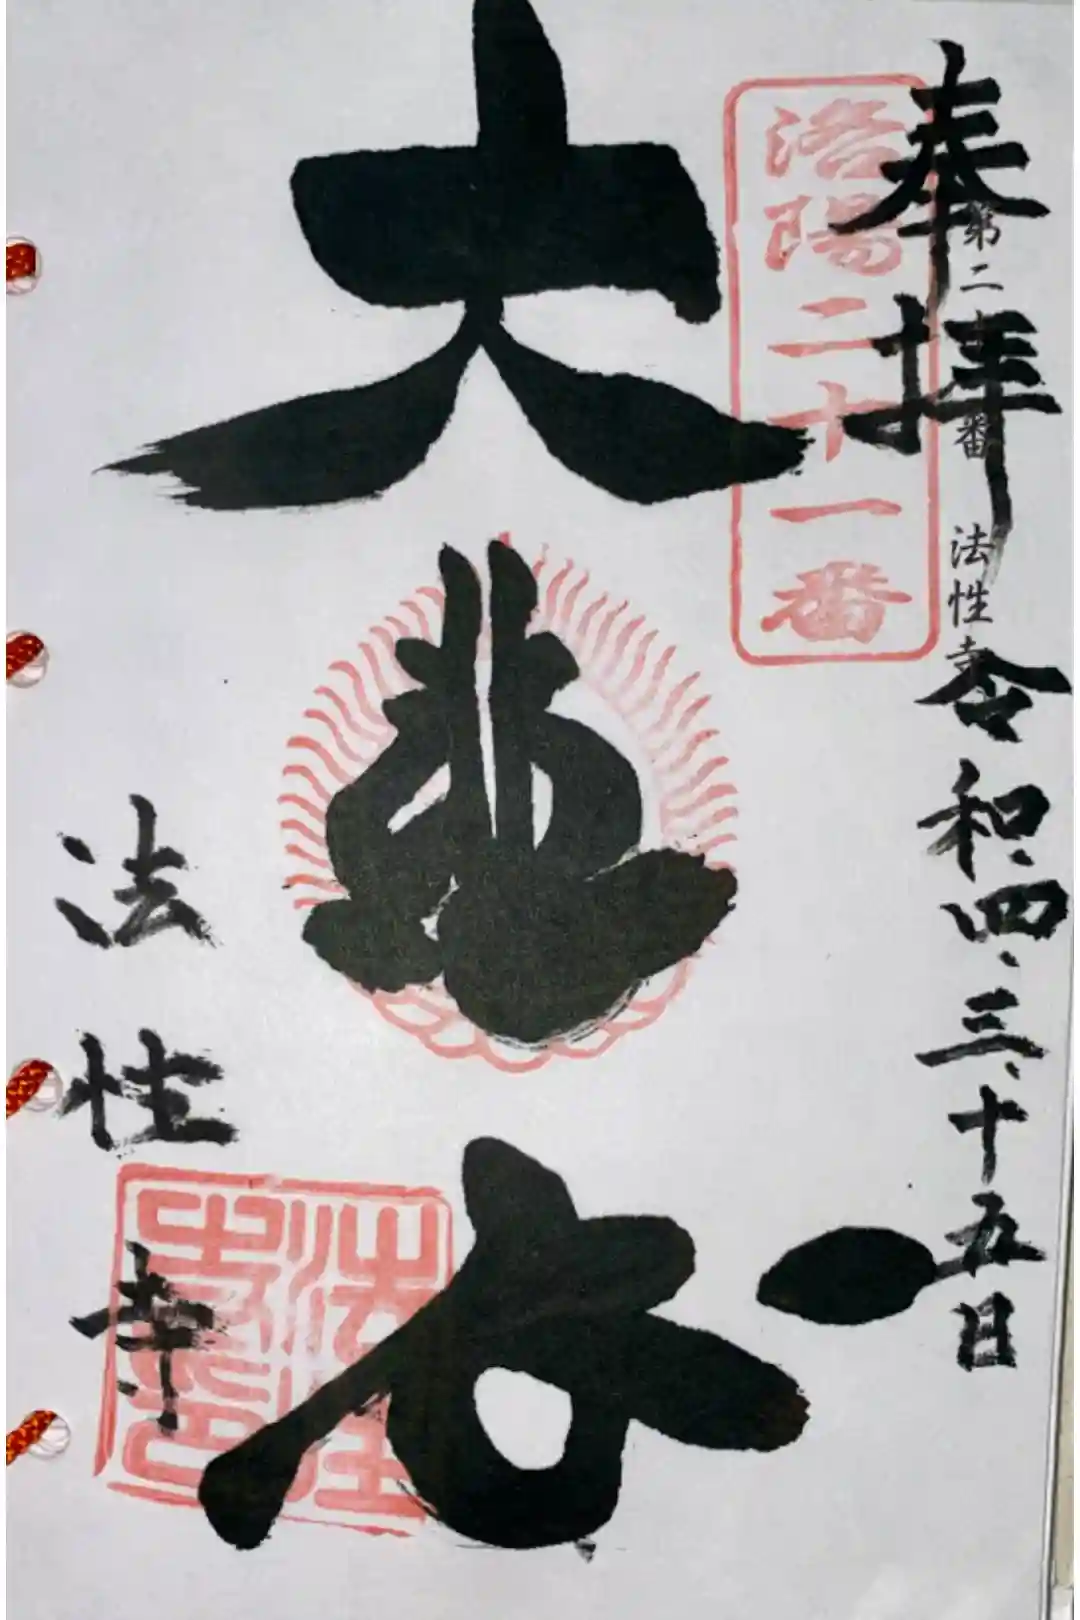 奉拝
令和四、三、十五日
第二十一番 法性寺
洛陽二十一番
大悲
法性寺